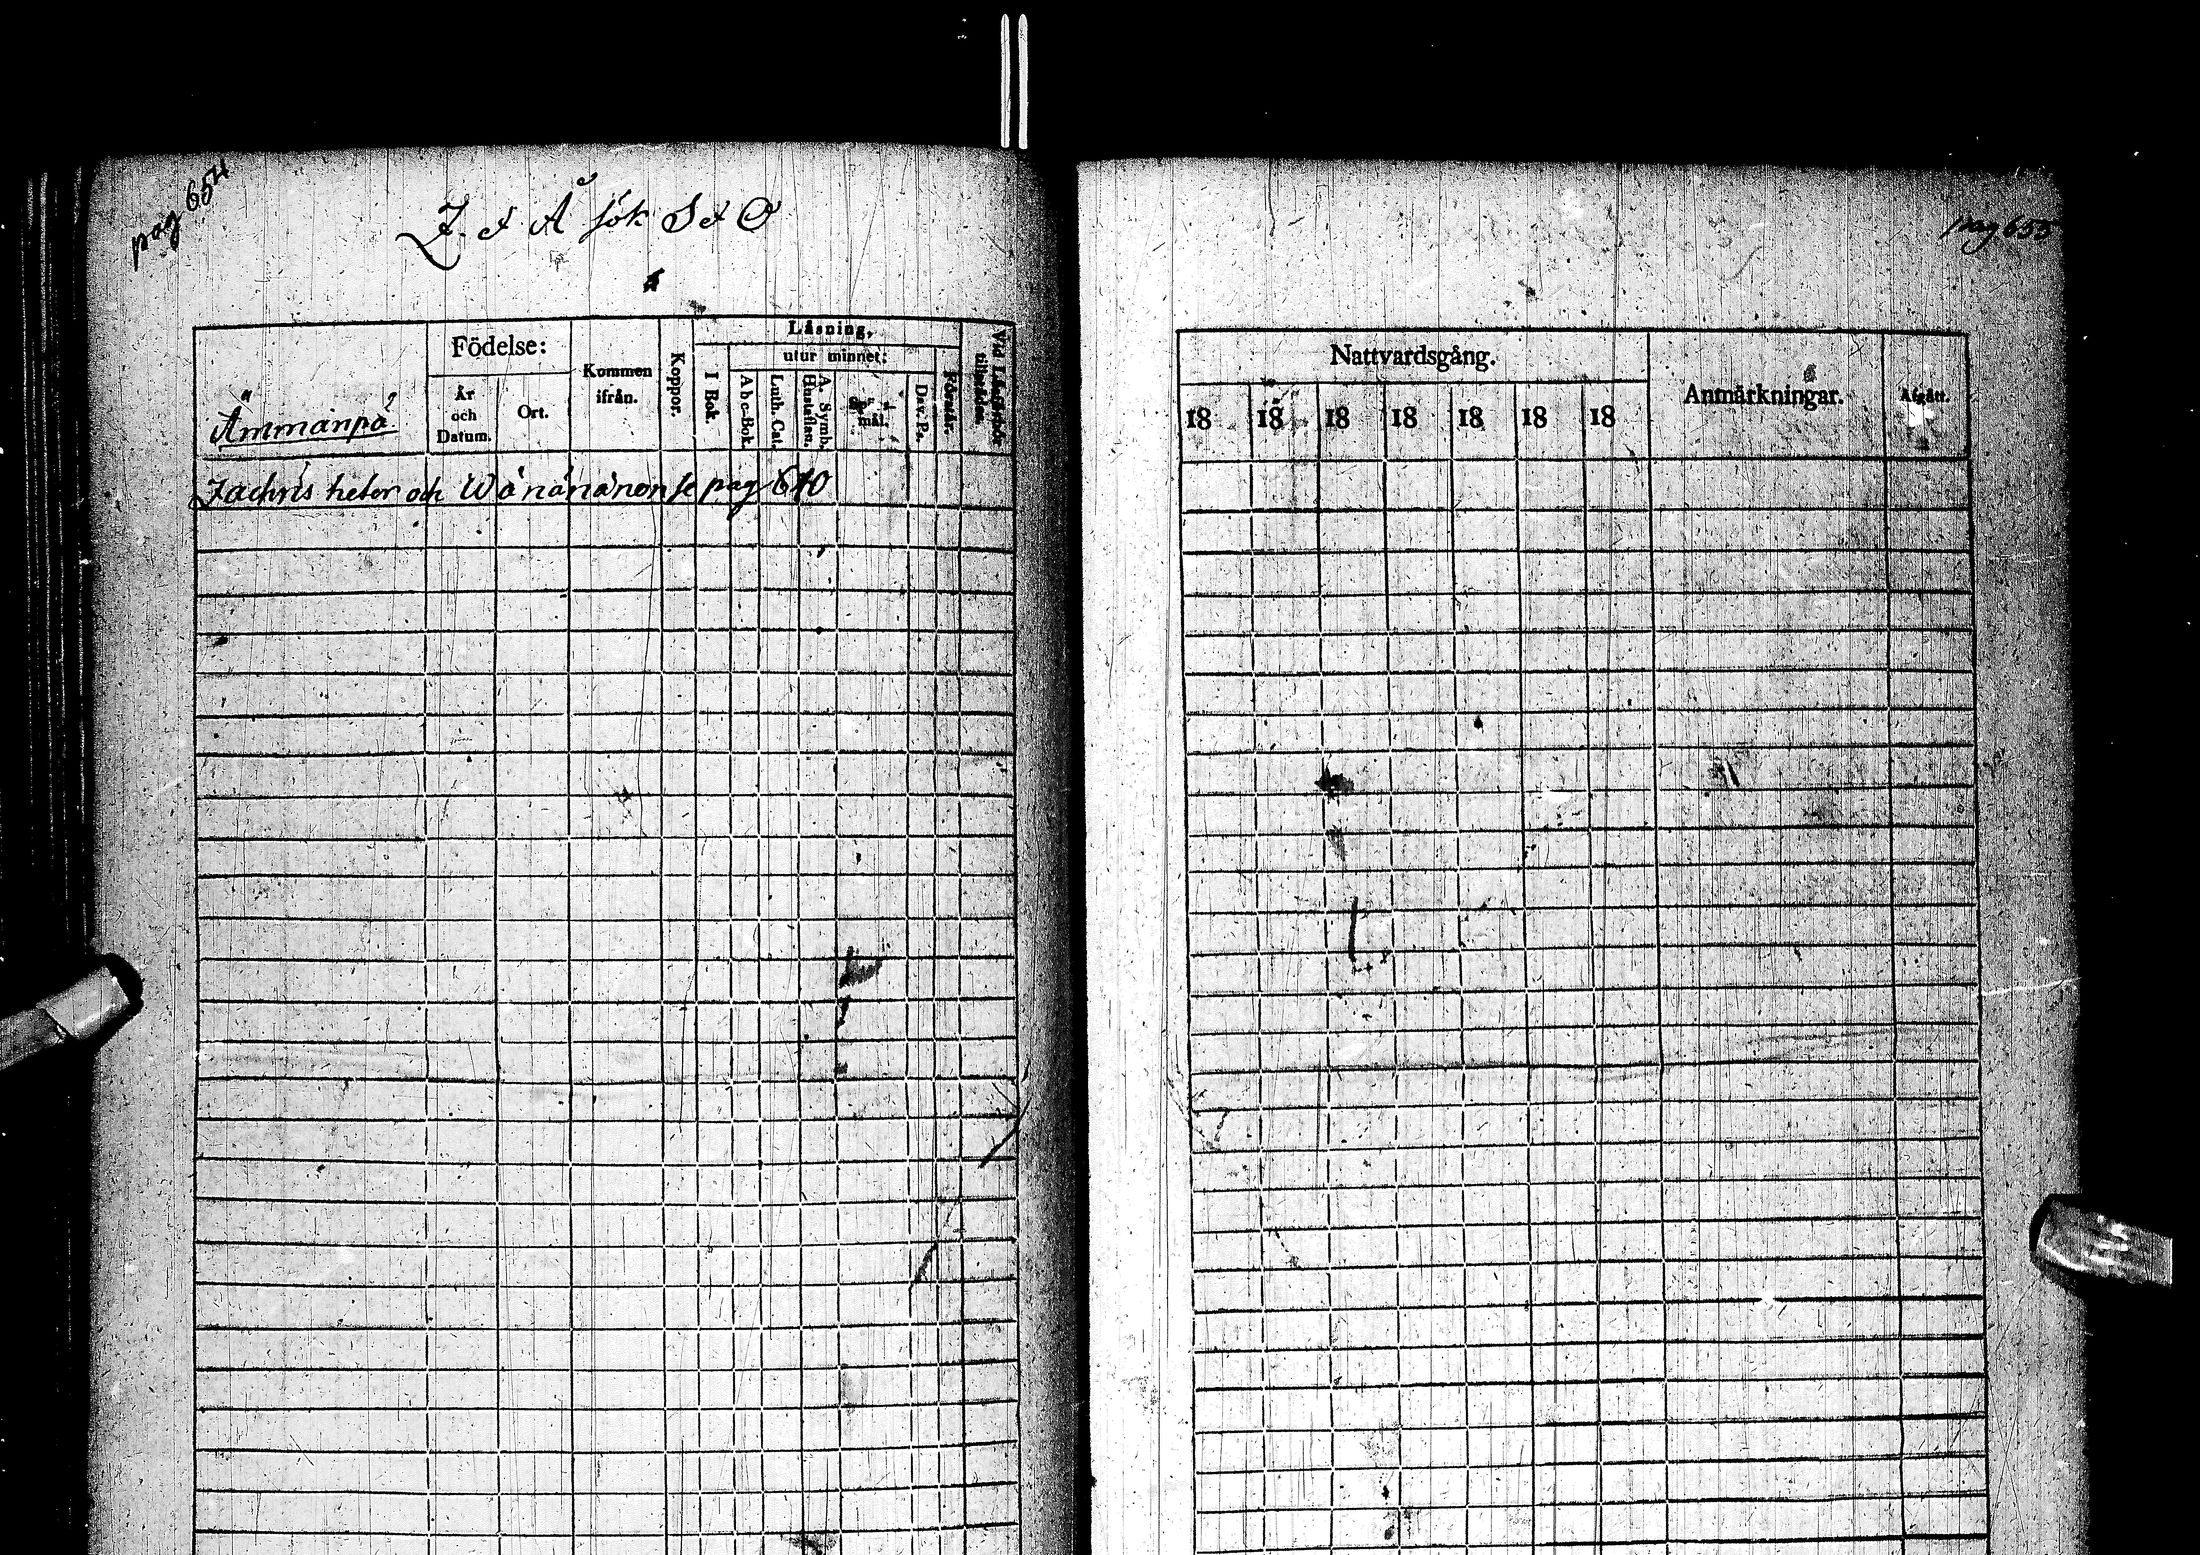 pag 654
Z. & Å sök S & O
Födelse:
Läsning,
utur minnet:
Kommen
ifrån.
Koppor.
I Bok.
A b c-Bok.
Luth. Cat.
A. Symb.
Hustaflan.
mål.
Dav. Ps.
Förstår.
Vid Läseförhör
tillstädes.
År
och
Datum.
Ort.
Ämmänpä
Zachris heter och Wänänänen se pag 610
pag 655
Nattvardsgång.
Anmärkningar.
Afgått.
18 18 18 18 18 18 18